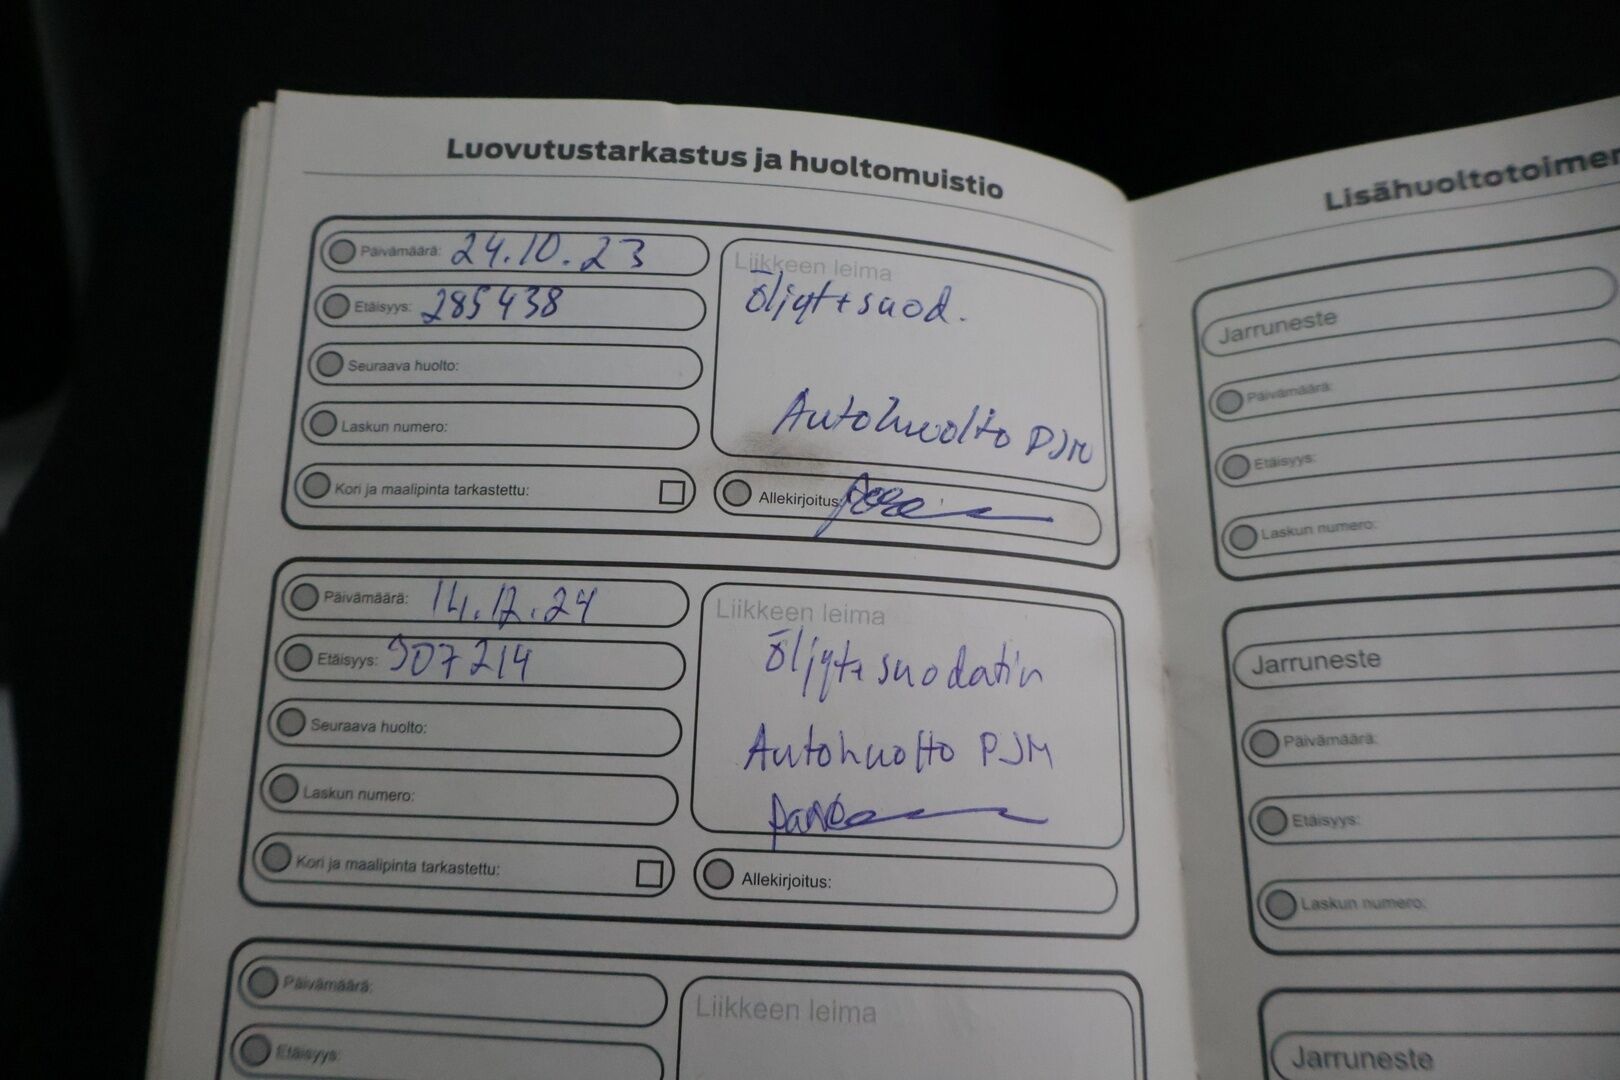 Luovutustarkastus ja huoltomuistio
Päivämäärä: 24.10.23
Etäisyys: 285438
Seuraava huolto:
Laskun numero:
Kori ja maalipinta tarkastettu:
Liikkeen leima
Öljyt+suod.
Autohuolto PJM
Allekirjoitus:
Päivämäärä: 14.12.24
Etäisyys: 307214
Seuraava huolto:
Laskun numero:
Kori ja maalipinta tarkastettu:
Liikkeen leima
Öljyt+ suodatin
Autohuolto PJM
Allekirjoitus:
Päivämäärä:
Etäisyys:
Liikkeen leima
Jarruneste
Päivämäärä:
Etäisyys:
Laskun numero:
Jarruneste
Päivämäärä:
Etäisyys:
Laskun numero:
Jarruneste